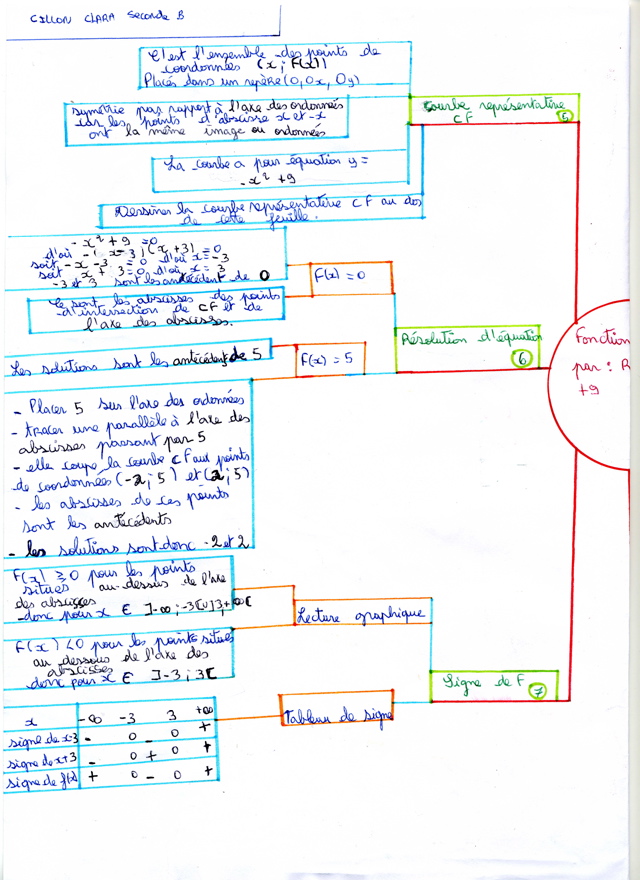 CILLON CLARA Seconde B
C'est l'ensemble des points de
coordonnées (x ; F(x))
Placés dans un repère (O, Ox, Oy)
Symétrie par rapport à l'axe des ordonnées
car les points d'abscisse x et -x
ont la même image ou ordonnées
La courbe a pour équation y =
-x² + 9
Dessiner la courbe représentative CF au dos
de cette feuille.
Courbe représentative
CF
5
-x² + 9 = 0
d'où -(x-3)(x+3) = 0
soit -x-3 = 0 d'où x = -3
soit x + 3 = 0 d'où x = 3
-3 et 3 sont les antécédent de 0
F(x) = 0
Ce sont les abscisses des points
d'intersection de CF et de
l'axe des abscisses.
Résolution d'équation
6
Les solutions sont les antécédent de 5
F(x) = 5
- Placer 5 sur l'axe des ordonnées
- tracer une parallèle à l'axe des
abscisses passant par 5
- elle coupe la courbe CF aux points
de coordonnées (-2 ; 5) et (2 ; 5)
- les abscisses de ces points
sont les antécédents
- les solutions sont donc -2 et 2
Fonction
par : R
+9
F(x) ≥ 0 pour les points
situés au-dessus de l'axe
des abscisses
donc pour x ∈ ]-∞ ; -3[U]3 ; +∞[
Lecture graphique
F(x) < 0 pour les points situés
au dessous de l'axe des
abscisses
donc pour x ∈ ]-3 ; 3[
Signe de F
7
Tableau de signe
x -∞ -3 3 +∞
signe de x-3 - 0 - 0 +
signe de x+3 - 0 + 0 +
signe de f(x) + 0 - 0 +